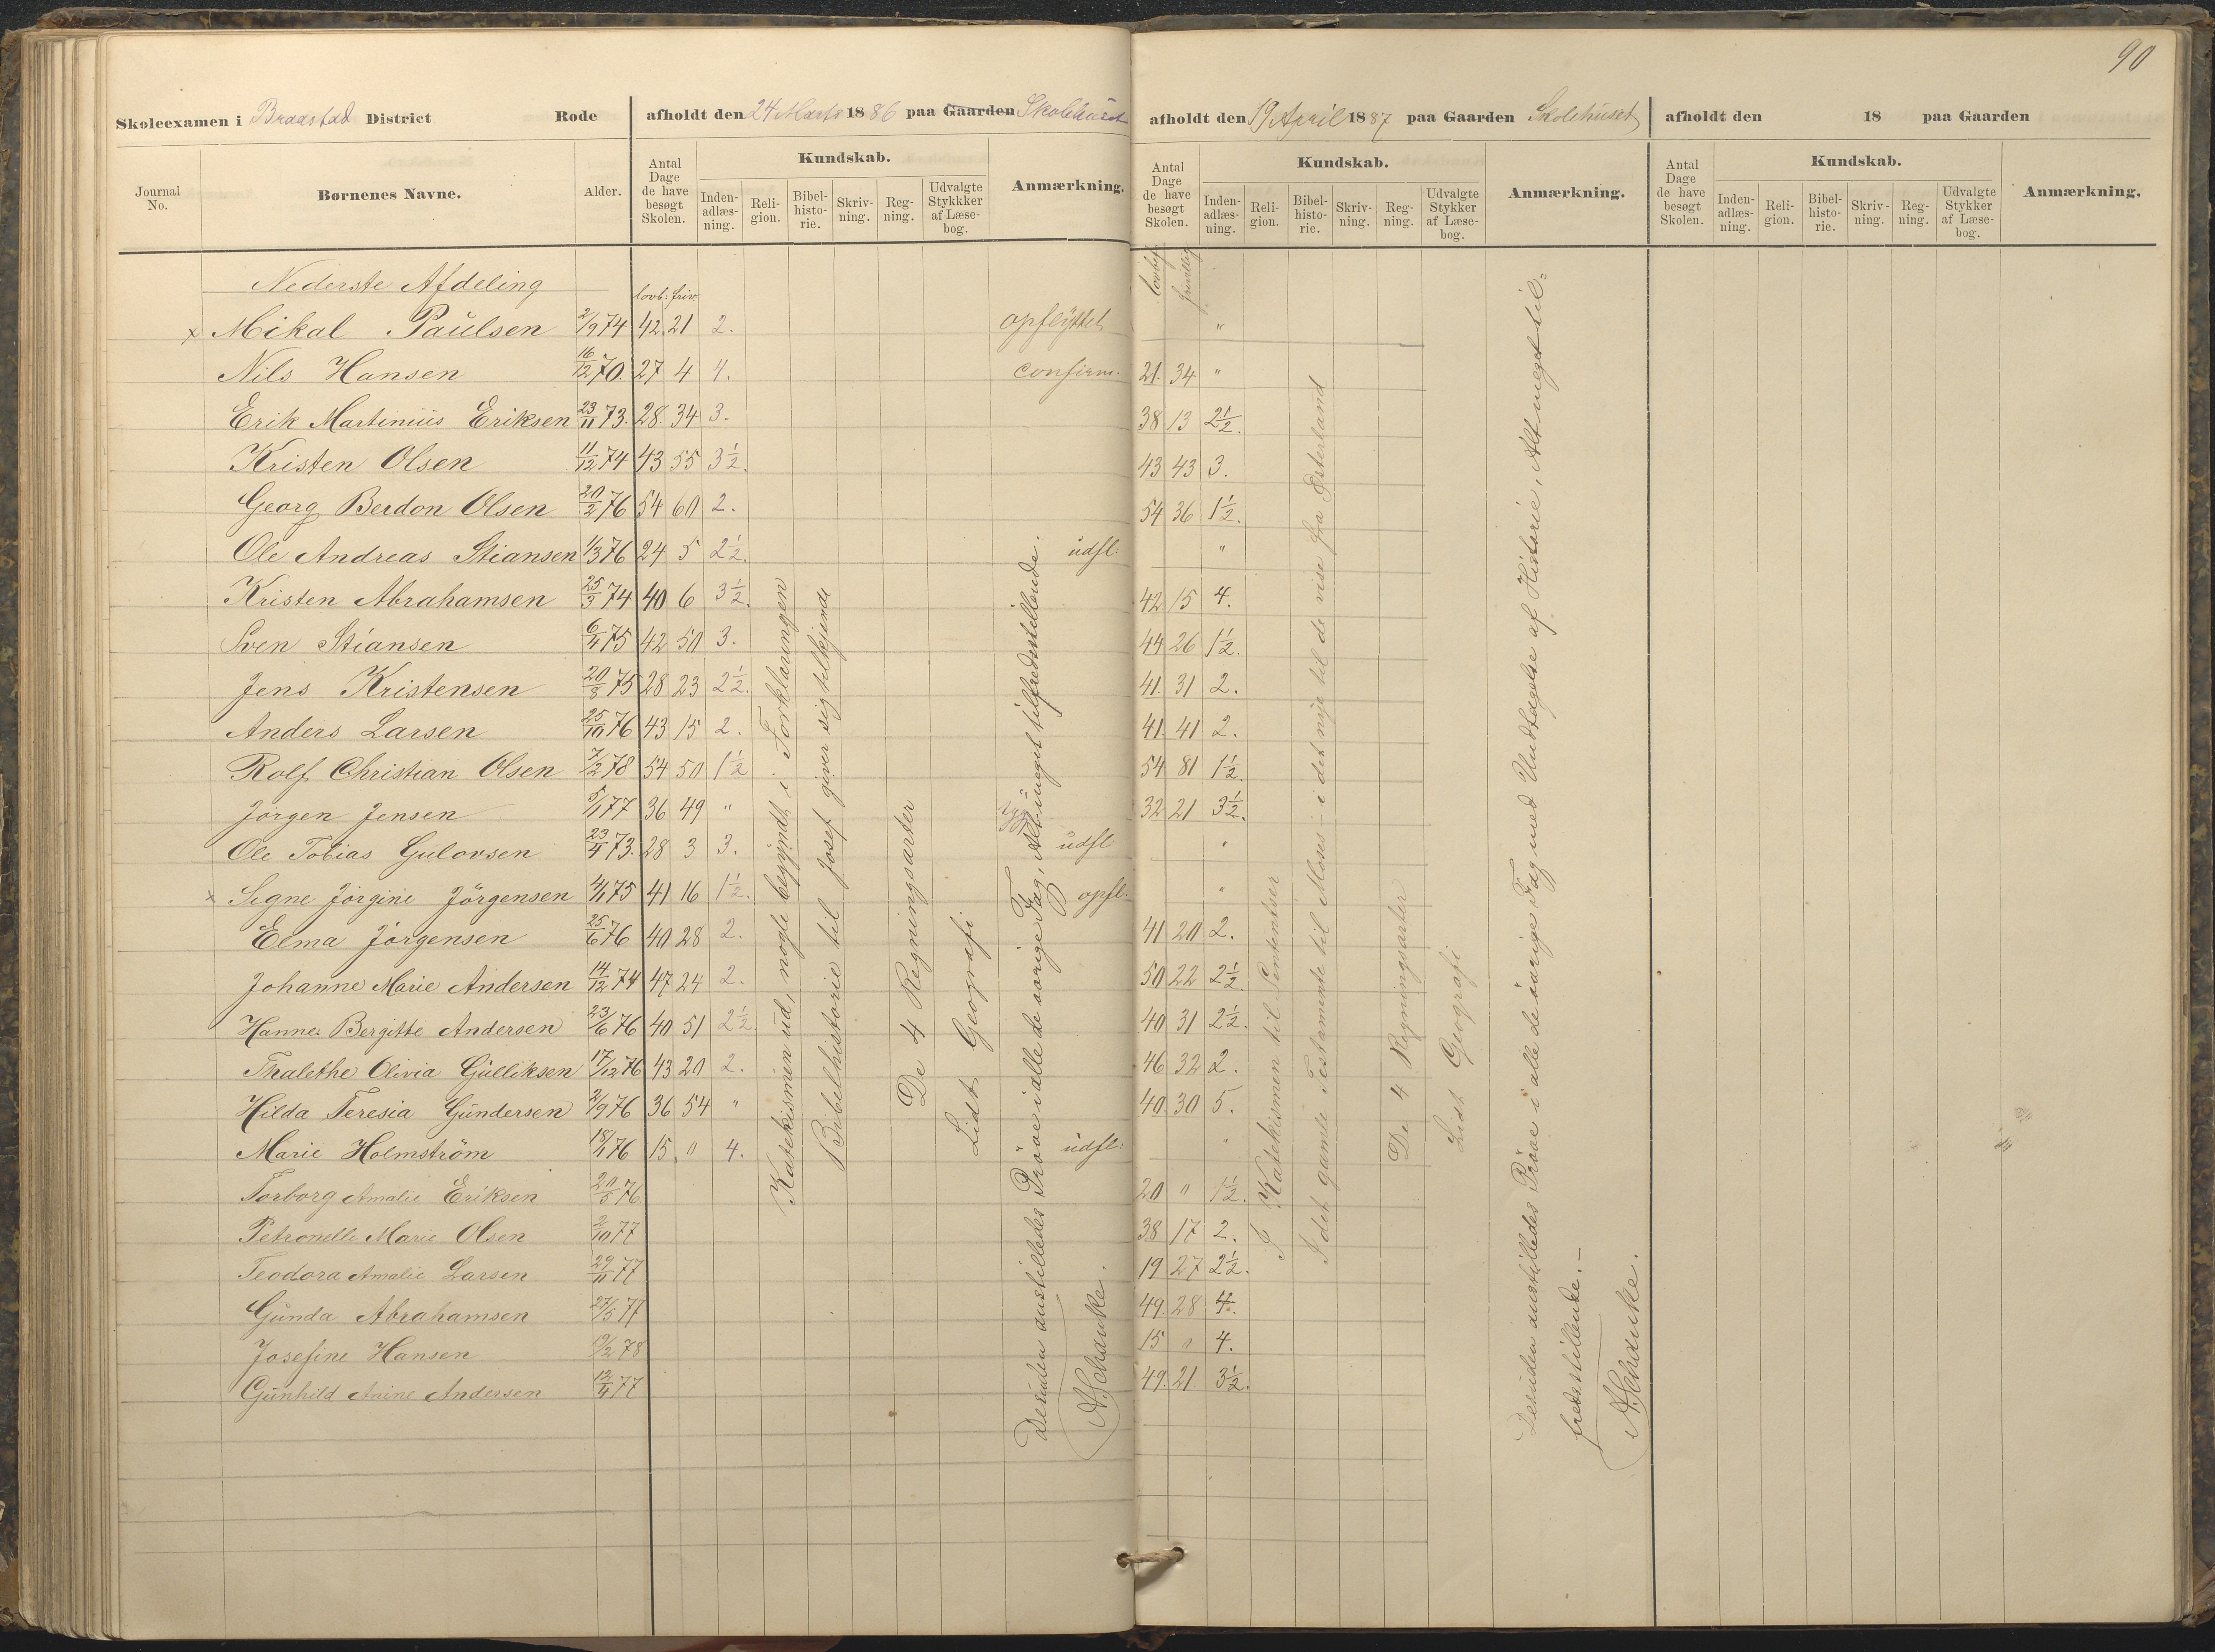 90
Skoleexamen i Braastad District Rode
afholdt den 24 Marts 1886 paa Gaarden Skolehuset
Journal No.
Børnenes Navne.
Alder.
Antal Dage de have besøgt Skolen.
Kundskab.
Inden-adlæs-ning.
Reli-gion.
Bibel-histo-rie.
Skriv-ning.
Reg-ning.
Udvalgte Stykkker af Læse-bog.
Anmærkning.
Nederste Afdeling
lovb: friv.
x Mikal Paulsen 2/9 74 42. 21 2. opflyttet
Nils Hansen 16/12 70. 27 4 4. confirm.
Erik Martinius Eriksen 23/11 73. 28. 34 3.
Kristen Olsen 11/12 74 43 55 3½.
Georg Berdon Olsen 20/2 76 54 60 2.
Ole Andreas Stiansen 1/3 76 24 5 2½. udfl:
Kristen Abrahamsen 25/3 74 40 6 3½.
Sven Stiansen 6/4 75 42 50 3.
Jens Kristensen 20/8 75 28 23 2½.
Anders Larsen 25/10 76 43 15 2.
Rolf Christian Olsen 7/2 78 54 50 1½
Jørgen Jensen 5/1 77 36 49 "
Ole Tobias Gulovsen 23/4 73. 28 3 3. udfl
x Signe Jørgine Jörgensen 4/1 75 41 16 1½. opfl:
Elma Jørgensen 25/6 76 40 28 2.
Johanne Marie Andersen 14/12 74 47 24 2.
Hanne Bergitte Andersen 23/6 76 40 51 2½.
Thalethe Olivia Gulliksen 17/12 76 43 20 2.
Hilda Teresia Gundersen 2/9 76 36 54 "
Marie Holmström 18/1 76 15 " 4. udfl:
Torborg Amalie Eriksen 20/5 76.
Petronelle Marie Olsen 2/10 77
Teodora Amalie Larsen 29/11 77
Gunda Abrahamsen 27/5 77
Josefine Hansen 19/2 78
Gunhild Anine Andersen 12/4 77
Katekismen ud, nogle begyndt i Forklaringen
Bibelhistorie til Josef giver sig tilkjende
De 4 Regningsarter
Lidt Geografi
Desuden anstilledes Prøve i alle de øvrige Fag, Alt meget tilfredsstillende.
A. Schanke.
afholdt den 19 April 1887 paa Gaarden Skolehuset
Antal Dage de have besøgt Skolen.
Kundskab.
Inden-adlæs-ning.
Reli-gion.
Bibel-histo-rie.
Skriv-ning.
Reg-ning.
Udvalgte Stykker af Læse-bog.
Anmærkning.
lovbef.
frivillig
"
21. 34 "
38 13 2½.
43 43 3.
54 36 1½.
"
42. 15 4.
44 26 1½.
41. 31 2.
41. 41 2.
54 81 1½.
32 21 3½.
"
"
41 20 2.
50 22 2½.
40 31 2½.
46 32 2.
40. 30 5.
"
20 " 1½.
38 17 2.
19 27 2½.
49. 28 4.
15 " 4.
49. 21. 3½.
I Katekismen til Sententser
I det gamle Testamente til Moses – i det nye til de vise fra Østerland
De 4 Regningsarter
Lidt Geografi
Desuden anstilledes Prøve i alle de øvrige Fag med Undtagelse af Historie, Alt meget til=
fredsstillende.–
A Schanke.
afholdt den 18 paa Gaarden
Antal Dage de have besøgt Skolen.
Kundskab.
Inden-adlæs-ning.
Reli-gion.
Bibel-histo-rie.
Skriv-ning.
Reg-ning.
Udvalgte Stykker af Læse-bog.
Anmærkning.